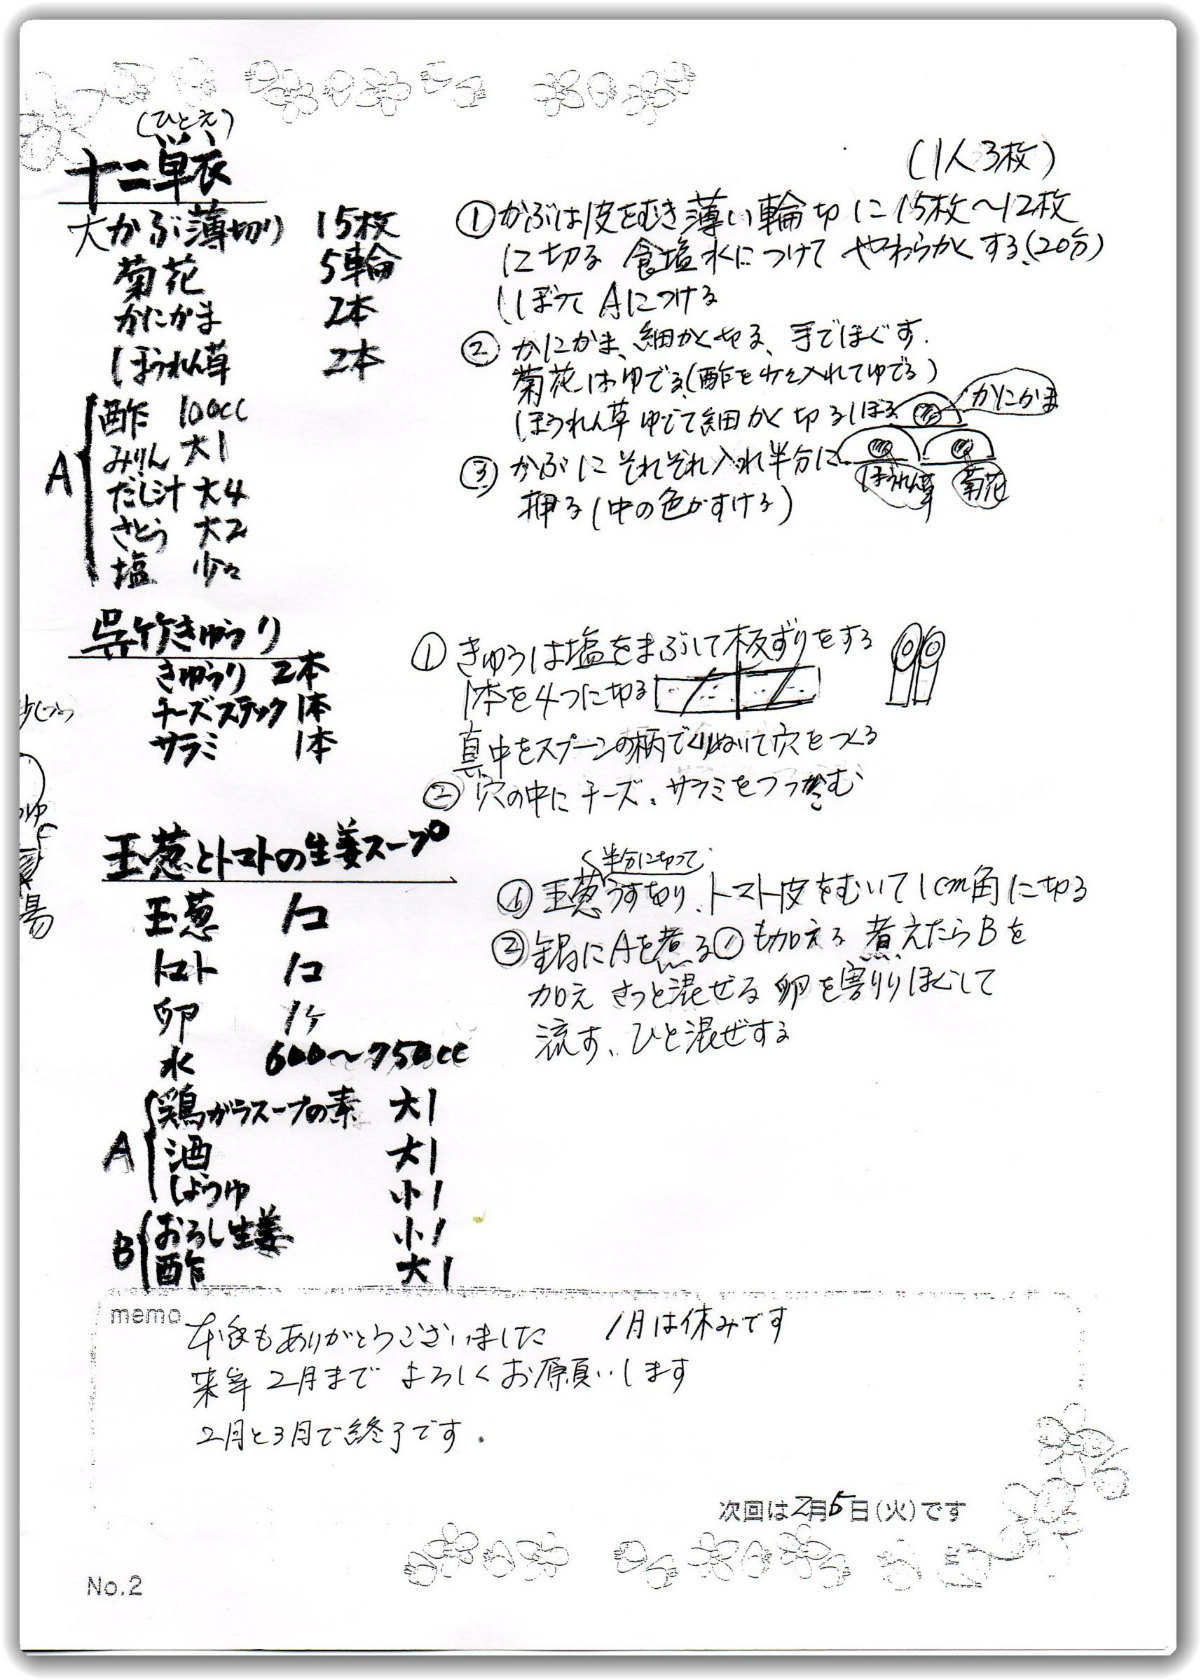 (ひとえ)
十二単衣
大かぶ薄切り 15枚
菊花 5輪
かにかま 2本
ほうれん草 2本
A
酢 100cc
みりん 大1
だし汁 大4
さとう 大2
塩 少々
(1人3枚)
①かぶは皮をむき薄い輪切に15枚〜12枚
に切る 食塩水につけてやわらかくする(20分)
しぼって Aにつける
②かにかま、細かく切る、手でほぐす.
菊花はゆでる(酢を少々入れてゆでる)
ほうれん草ゆでて細かく切るしぼる
かにかま
③かぶにそれぞれ入れ半分に
ほうれん草 菊花
押る(中の色がすける)
呉竹きゅうり
きゅうり 2本
チーズスティック 1本
サラミ 1本
①きゅうりは塩をまぶして板ずりをする
1本を4つに切る
真中をスプーンの柄でくりぬいて穴をつくる
②穴の中にチーズ、サラミをつっこむ
玉葱とトマトの生姜スープ
玉葱 1コ
トマト 1コ
卵 1ケ
水 600〜750cc
A
鶏がらスープの素 大1
酒 大1
しょうゆ 小1
B
おろし生姜 小1
酢 大1
半分に切って
①玉葱うす切り、トマト皮をむいて1cm角に切る
②鍋にAを煮る①も加える 煮えたらBを
加え さっと混ぜる 卵を割りほぐして
流す、ひと混ぜする
memo
本年もありがとうございました 1月は休みです
来年2月まで よろしくお願いします
2月と3月で終了です.
次回は2月5日(火)です
No.2